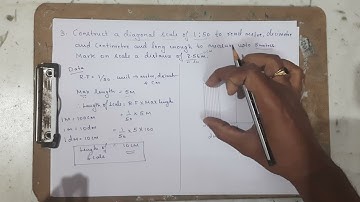 3. Construct a diagonal scale of 1:50 to read meter, decimeter
and centimeter and long enough to measure upto 5 metre
Mark on scale a distance of 2.56m.
Data
R.F = 1/50
Max length = 5m
Length of scale = R.F × Max length
1m = 100cm = 1/50 × 5m
1m = 10dm = 1/50 × 5×100
1dm = 10cm
Length of scale = 10cm